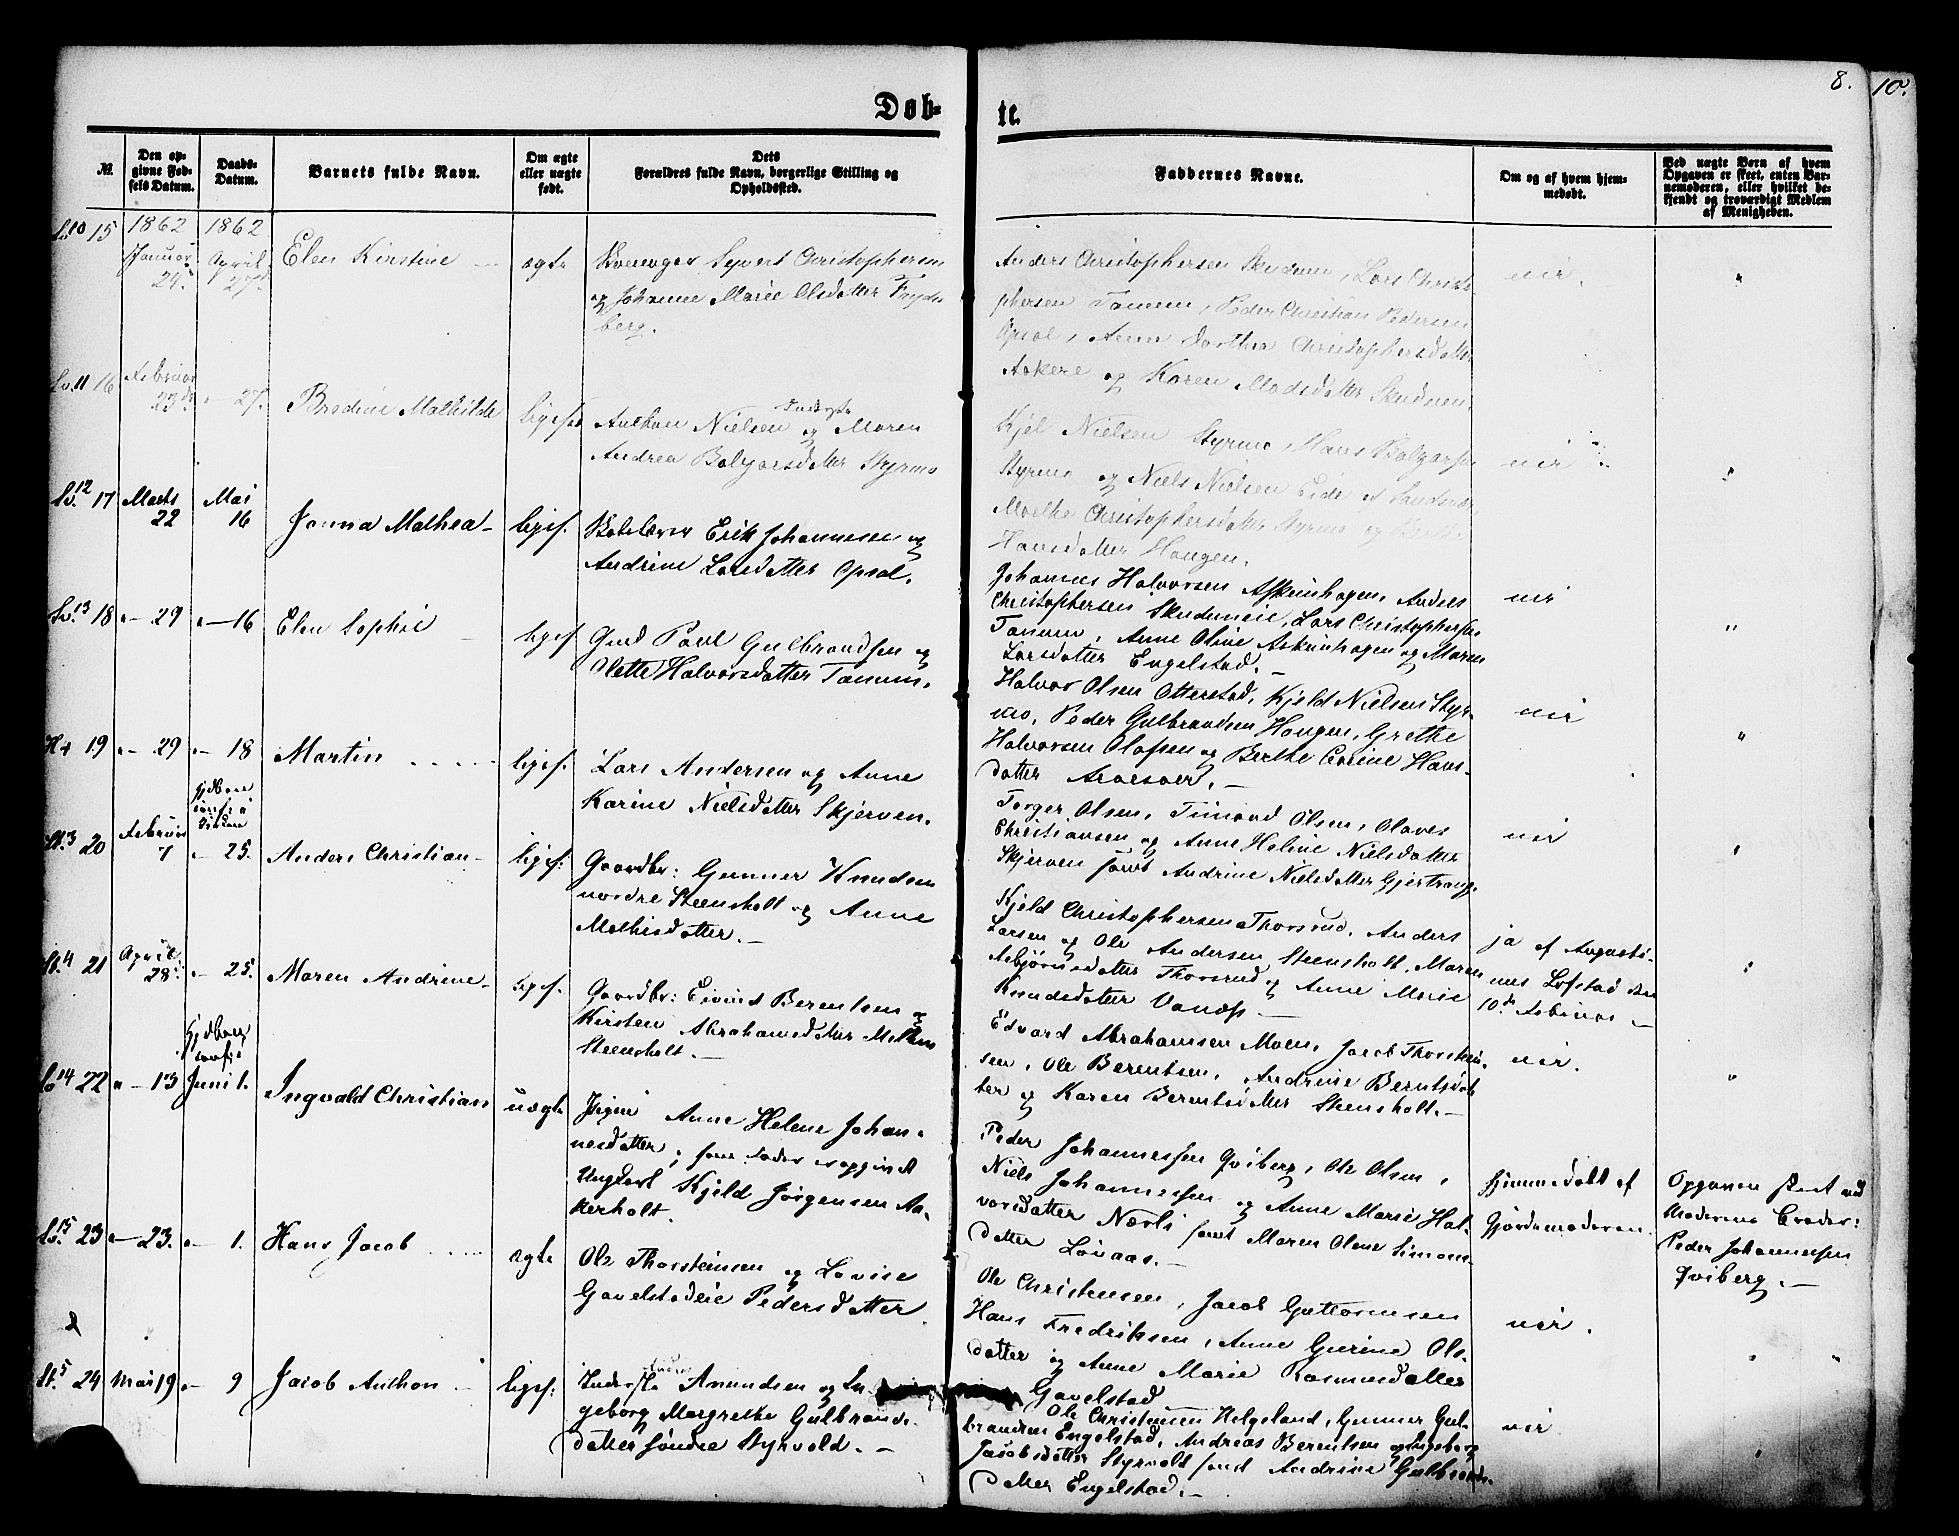 8. 10.
Døb-
te.
№.
Den op-
givne Fød-
sels Datum.
Daabs-
Datum.
Barnets fulde Navn.
Om ægte
eller uægte
født.
Dets
Forældres fulde Navn, borgerlige Stilling og
Opholdssted.
Faddernes Navne.
Om og af hvem hjem-
medøbt.
Ved uægte Børn af hvem
Opgaven er skeet, enten Bar-
nemoderen, eller hvilket be-
kjendt og troværdigt Medlem
af Menigheden.
15
1862
Januar
24.
1862
April
27.
Elen Kirstine
ægte
Sivert Christophersen
og Johanne Marie Olsdatter Fryds
berg.
Anders Christophersen Skudnm, Lars Christo
phersen Tanum, Peder Christian Pedersen
Opsal, Anne Dorthea Christophersdatter
Askere og Karen Madsdatter Skudnen.
nei.
"
16
Februar
23de
27.
Bredine Mathilde
ligesaa
Anthon Nielsen og Maren
Andrea Bolgarsdatter Styrmo
Kjel Nielsen Styrmo, Hans Bolgarsen
Styrmo og Niels Nielsen Eide af Sandsvær
Marthe Christophersdatter Styrmo og
Hansdatter Haugen.
nei
"
Lv. 12 17
Marts
22
Mai
16
Janna Mathea
ligef.
Erik Johannesen og
Andrine Larsdatter Opsal.
Johannes Halvorsen Askimhagen, Anders
Christophersen Skudmeie, Lars Christophersen
Tanum, Anne Oline Askimhagen og Maren
Larsdatter Engelstad.
nei
"
Lv. 13 18
29
16
Elen Sophie
ligef.
Gmd Povl Gulbrandsen og
Olette Halvorsdatter Tanum.
Halvor Olsen Otterstad, Kjeld Nielsen Styr-
mo, Peder Gulbrandsen Haugen, Grethe
Halvorsen Olafsen og Berthe Corine Hans-
datter
nei
"
19
29
18
Martin
ligef.
Lars Andersen og Anne
Karine Nielsdatter Skjerven.
Torger Olsen, Simond Olsen, Olaves
Christiansen og Anne Heline Nielsdatter
Skjerven samt Andrine Nielsdatter Gjertrang.
nei
St. 3 20
Februar
7
25.
Anders Christian
ligef.
Gaardbr: Gunner Knudsen
nordre Steensholt og Anne
Mathisdatter.
Kjeld Christophersen Thorsrud, Anders
Larsen og Ole Andersen Steensholt, Maren
Asbjørnsdatter Thorsrud og Anne Marie
Knudsdatter
ja af Augusti-
nus Løfstad den
10de Februar
St. 4 21
April
28.
25.
Maren Andrine
ligef.
Gaardbr: Eivind Berentsen og
Kirsten Abrahamsdatter Mellem
Steensholt.
Edvard Abrahamsen Moen, Jacob Thorstein-
sen, Ole Berentsen, Andrine Berntsdat-
ter og Karen Berentsdatter Steensholt.
nei.
"
Lv 14 22
13
Juni 1.
Ingvald Christian
uægte
Pigen Anne Helene Johan-
nesdatter, som Fader er opgivet
Ungkarl Kjeld Jørgensen Aa-
kerholt.
Peder Johannessen Qviberg, Ole Olsen,
Niels Johannessen og Anne Marie Hal-
vorsdatter Nærli samt Maren Olene Simons-
datter Løvaas.
hjemmedøbt af
Gjordemoderen.
Opgaven skeet ved
Moderens Broder:
Peder Johannessen
Qviberg.
Lv. 15 23
23.
1.
Hans Jacob
ægte
Ole Thorsteinsen og Lovise
Gavelstadeie Pedersdatter
Ole Christensen, Jacob Guttormsen
Hans Fredriksen, Anne Gurine Ols-
datter og Anne Marie Rasmusdatter
Gavelstad
nei.
St. 5 24
Mai 19
9
Jacob Anthon
ligef.
Inderste Amundsen og In
geborg Margrethe Gulbrands-
datter søndre Styrvold.
Ole Christensen Helgeland, Gunner Gul-
brandsen Engelstad, Andreas Berentsen og Ingeborg
Jacobsdatter Styrvold samt Andrine Gulbrands-
datter Engelstad.
nei.